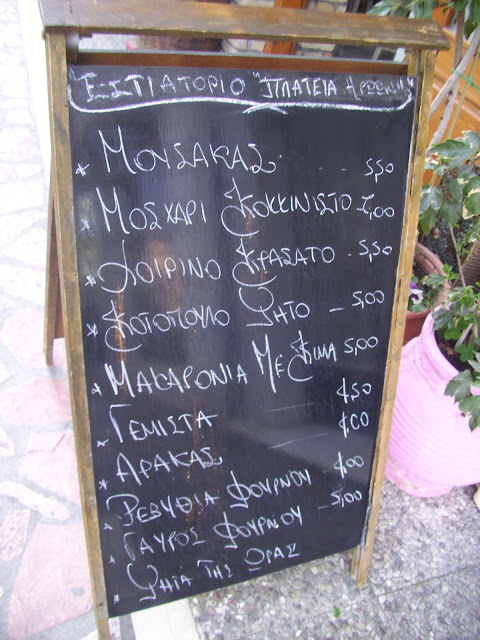 ΕΣΤΙΑΤΟΡΙΟ "ΠΛΑΤΕΙΑ
* ΜΟΥΣΑΚΑΣ - - 5,50
* ΜΟΣΧΑΡΙ ΚΟΚΚΙΝΙΣΤΟ 7,00
* ΧΟΙΡΙΝΟ ΚΡΑΣΑΤΟ - 5,50
* ΚΟΤΟΠΟΥΛΟ ΨΗΤΟ - 5,00
* ΜΑΚΑΡΟΝΙΑ ΜΕ ΚΙΜΑ 5,00
* ΓΕΜΙΣΤΑ — 4,50
* ΑΡΑΚΑΣ — 4,00
* ΡΕΒΥΘΙΑ ΦΟΥΡΝΟΥ 4,00
* ΓΑΥΡΟΣ ΦΟΥΡΝΟΥ - 5,00
* ΨΗΤΑ ΤΗΣ ΩΡΑΣ